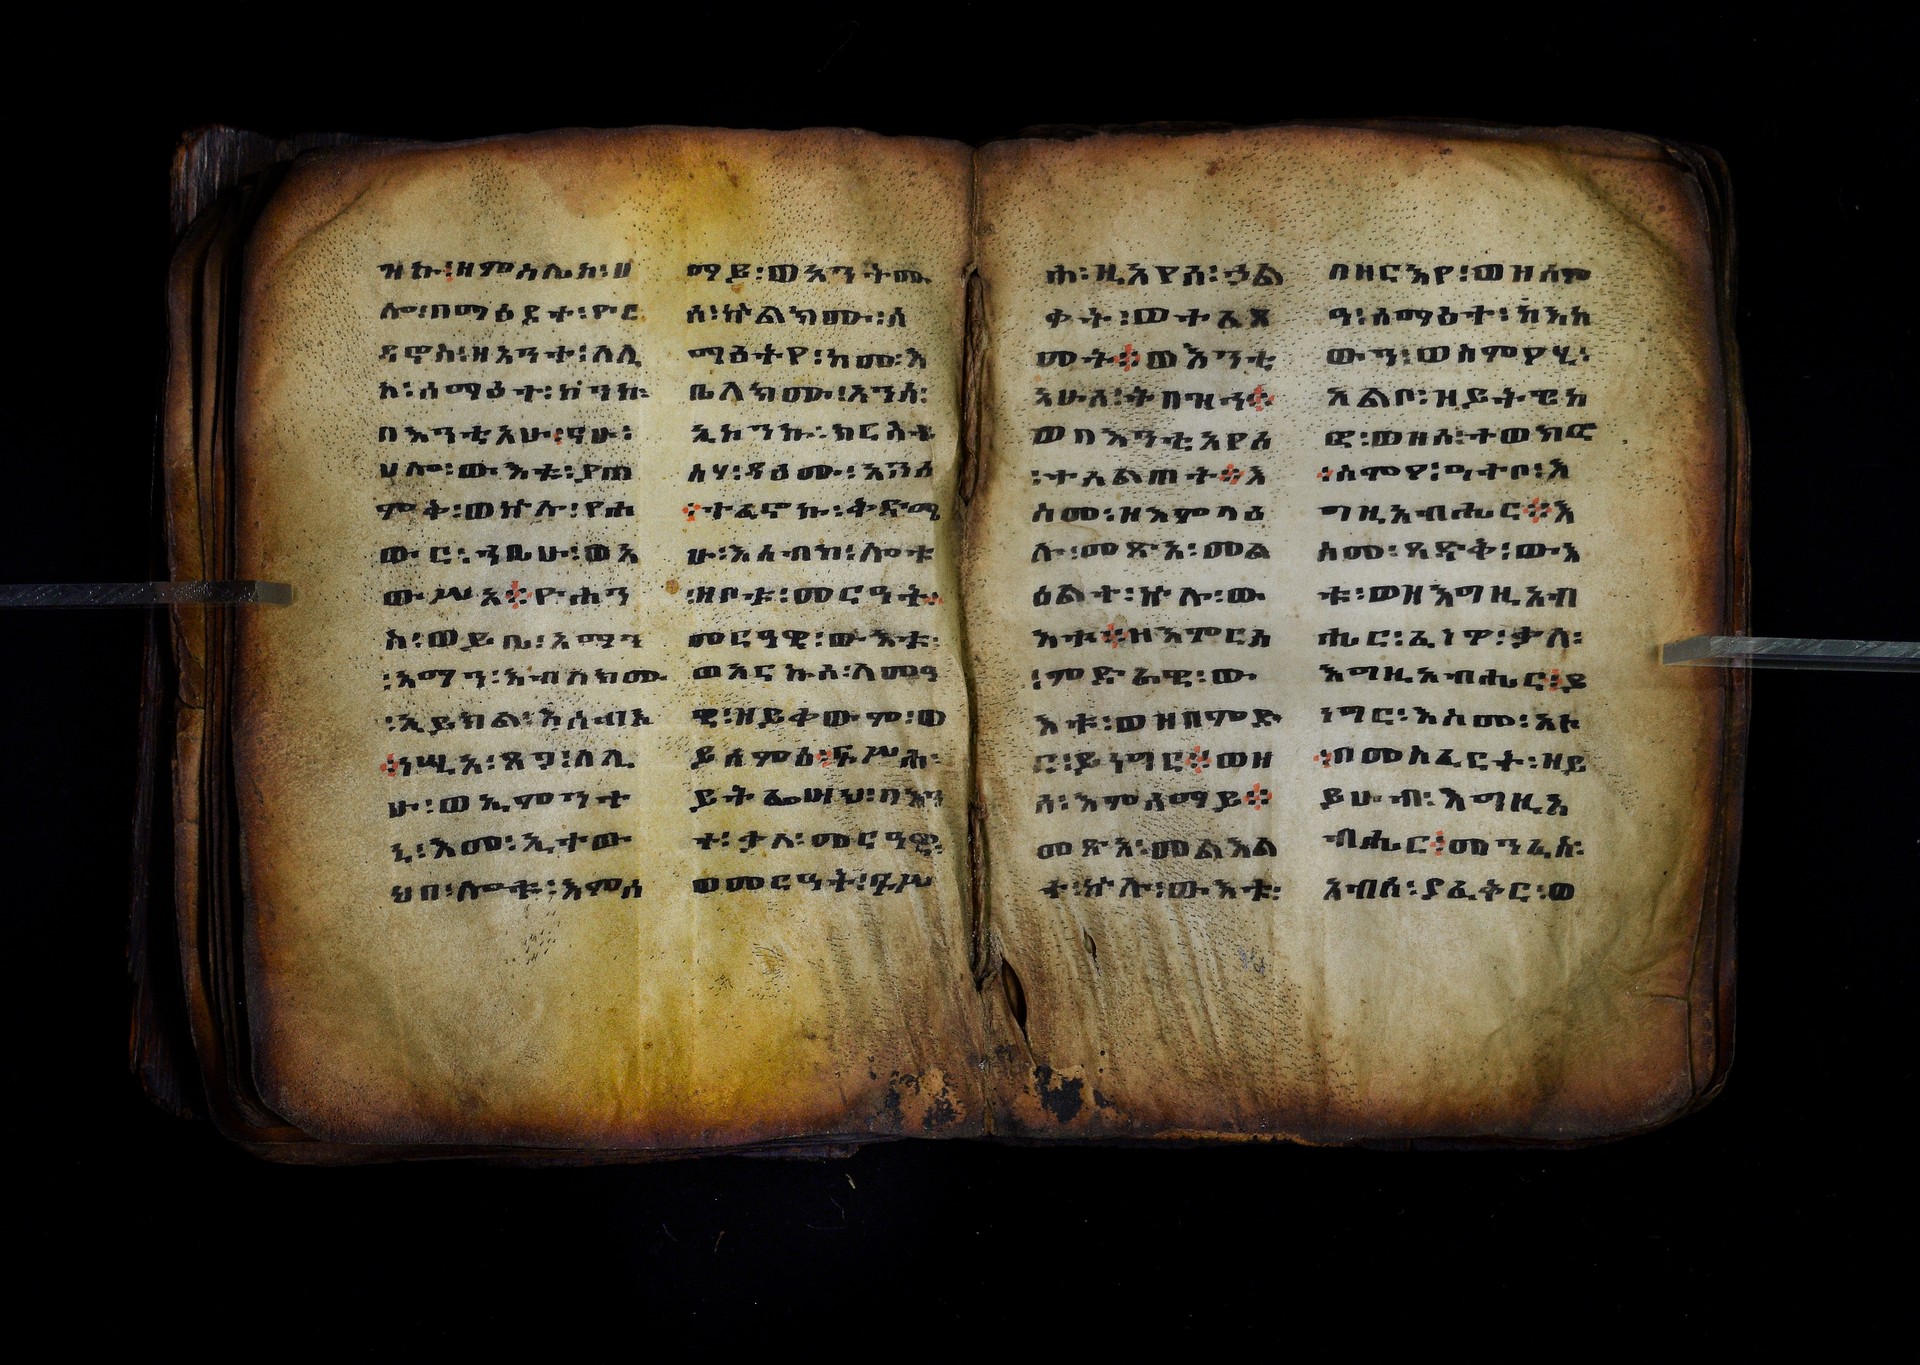 ዝኩ፡ዘምስሌከ፡ሀ
ሎ፡በማዕደተ፡ዮር
ዳኖስ፡ዘአንተ፡ለሊ
ከ፡ሰማዕተ፡ኮንከ፡
በእንቲአሁ፡ናሁ፡
ሀሎ፡ውእቱ፡ያጠ
ምቅ፡ወኵሉ፡የሐ
ውር፡ኀቤሁ፡ወአ
ውሥአ፨ዮሐን
ስ፡ወይቤ፡አማን
፡አማን፡እብለክሙ
፡ኢይክል፡እሰብእ
፨ነሢአ፡ጸጋ፡ለሊ
ሁ፡ወኢምንተ
ኒ፡እመ፡ኢተው
ህበ፡ሎቱ፡እምሰ
ማይ፡ወአንትሙ
ሰ፡ኵልክሙ፡ሰ
ማዕትየ፡ከመ፡እ
ቤለክሙ፡አንሰ፡
ኢኮንኩ፡ክርስቶ
ስሃ፡ዳዕሙ፡አንሰ
፨ተፈኖኩ፡ቅድሜ
ሁ፡እስብክ፡ሎቱ
፡ዘቦቱ፡መርዓት፨
መርዓዊ፡ውእቱ፡
ወአርኩሰ፡ለመዓ
ዊ፡ዘይቀውም፡ወ
ይሰምዕ፨ፍሥሐ፡
ይትፌሣህ፡በእን
ተ፡ቃለ፡መርዓዊ፡
ወመርዓት፡ፍሥ
ሐ፡ዚአየሰ፡ኃል
ቀት፡ወተፈጸ
መት፨ወእንቲ
አሁሰ፡ትበዝኅ፨
ወበእንቲአየሰ
፡ተአልጠት፨እ
ስመ፡ዘእምላዕ
ሉ፡መጽአ፡መል
ዕልተ፡ኵሉ፡ው
እቱ፨ዘእምርእ
፡ምድራዊ፡ው
እቱ፡ወዘበምድ
ር፡ይነግር፨ወዘ
ሰ፡እምሰማይ፨
መጽአ፡መልእል
ተ፡ኵሉ፡ውእቱ፡
በዘርእየ፡ወዘሰም
ዓ፡ሰማዕተ፡ከእከ
ውን፡ወስምዖሂ፡
አልቦ፡ዘይትዌከ
ፎ፡ወዘሰ፡ተወክፎ
፨ስምየ፡ዓተቦ፡እ
ግዚአብሔር፨እ
ስመ፡ጻድቅ፡ውእ
ቱ፡ወዘእግዚአብ
ሔር፡ፈነዎ፡ቃለ፡
እግዚአብሔር፨ይ
ነግር፡እስመ፡አኮ
፨በመስፈርት፡ዘይ
ይሁብ፡እግዚአ
ብሔር፨መንፈሰ፡
አብሰ፡ያፈቅር፡ወ